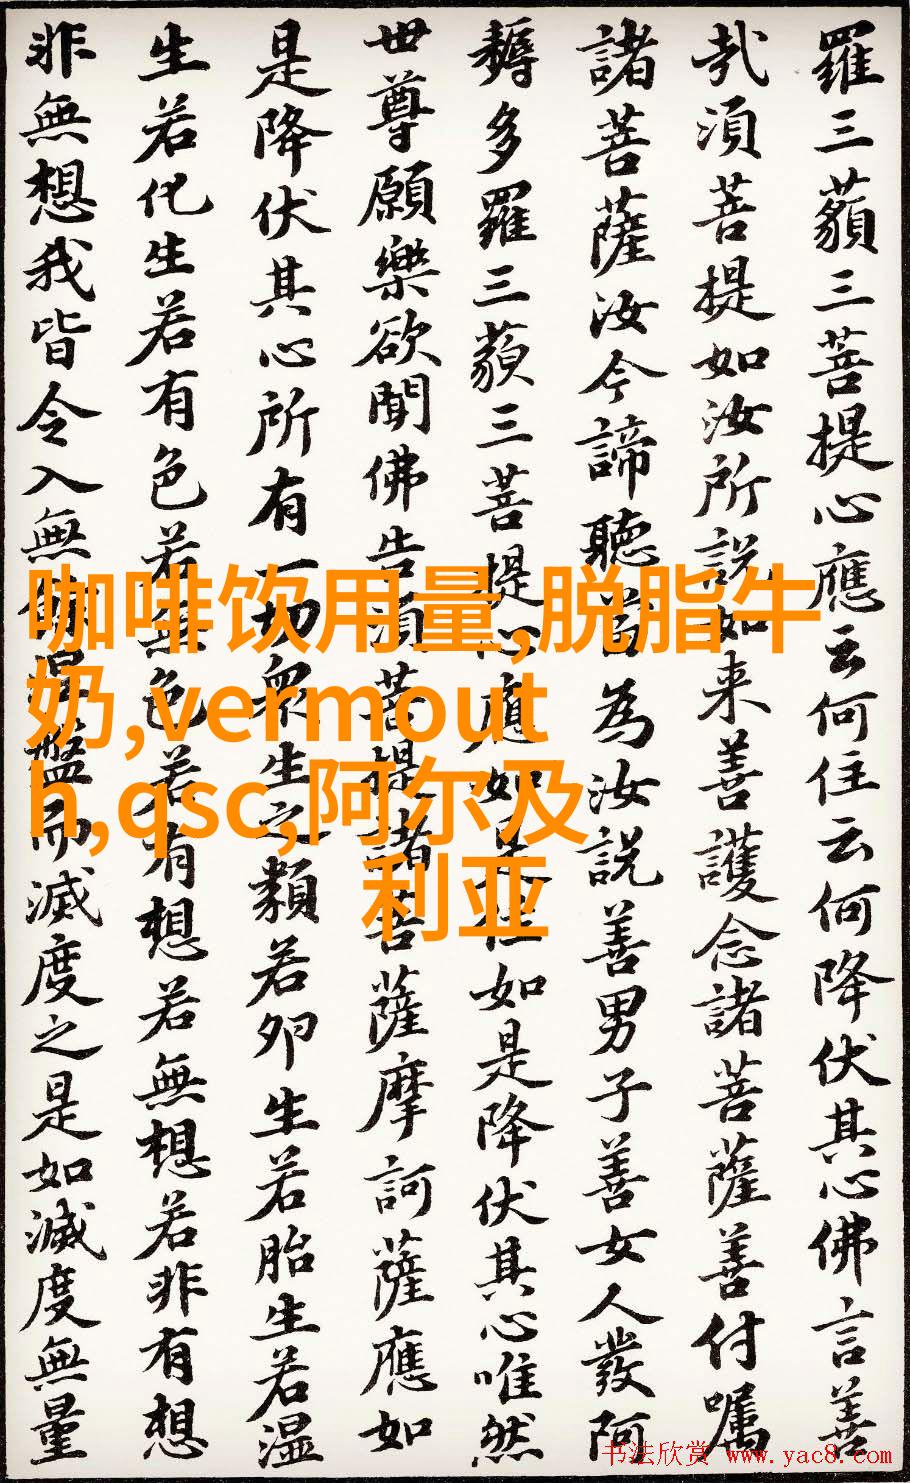 羅三藐三菩提心應云何住云何降伏其心佛言善
哉須菩提如汝所說如来善護念諸菩薩善付囑
諸菩薩汝今諦聽當為汝說善男子善女人發阿
耨多羅三藐三菩提心應如是住如是降伏其心唯然
世尊願樂欲聞佛告須菩提諸菩薩摩訶薩應如
是降伏其心所有一切眾生之類若卵生若胎生若湿
生若化生若有色若無色若有想若無想若非有想
非無想我皆令入無餘涅槃而滅度之是如滅度無量
咖啡饮用量,脱脂牛
奶,vermout
h,qsc,阿尔及
利亚
书法欣赏 www.yac8.com